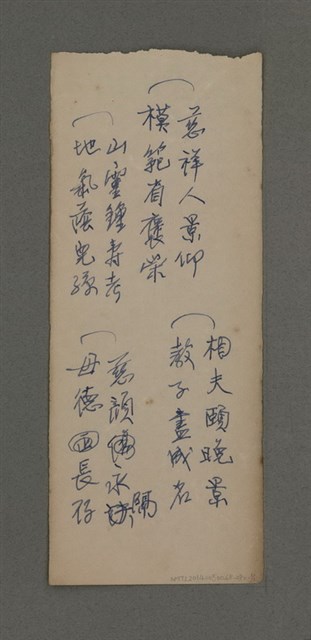 慈祥人景仰
模範省褒榮
山靈鍾壽考
地氣蔭兒孫
相夫頤晚景
教子盡成名
慈顏永隔
母德長存